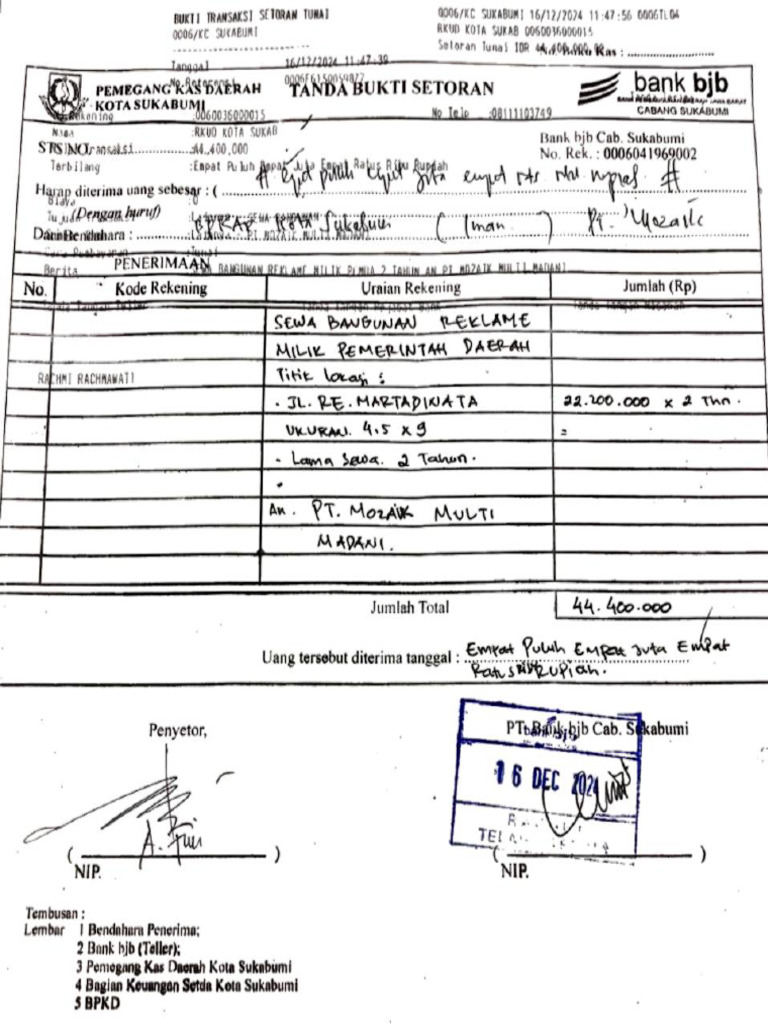 BUKTI TRANSAKSI SETORAN TUNAI
0006/KC SUKABUMI
0006/KC SUKABUMI 16/12/2024 11:47:56 0006TL04
RKUD KOTA SUKAB 0060036000015
Setoran Tunai IDR 44,400,000 Kas :
Tanggal 16/12/2024 11:47:39
PEMEGANG KAS DAERAH
KOTA SUKABUMI
TANDA BUKTI SETORAN
bank bjb
CABANG SUKABUMI
Rekening :0060036000015
No Telp :08111103749
Nama :RKUD KOTA SUKAB
STS NO.
Transaksi :44,400,000
Terbilang :Empat Puluh Empat Juta Empat Ratus Ribu Rupiah
Bank bjb Cab. Sukabumi
No. Rek. : 0006041969002
Harap diterima uang sebesar : (
# empat puluh empat juta empat rts ribu rupiah #
(Dengan huruf)
Dari Bendahara : BPKAD Kota Sukabumi (Iman) Pt. Mozaik
Berita
BANGUNAN REKLAME MILIK PEMDA 2 TAHUN AN PT MOZAIK MULTI MADANI
PENERIMAAN
No. Kode Rekening Uraian Rekening Jumlah (Rp)
SEWA BANGUNAN REKLAME
MILIK PEMERINTAH DAERAH
RACHMI RACHMAWATI
Titik lokasi :
. JL. RE. MARTADINATA 22.200.000 x 2 Thn.
UKURAN. 4.5 x 9 =
- Lama Sewa. 2 Tahun.
An. PT. MOZAIK MULTI
MADANI.
Jumlah Total 44.400.000
Uang tersebut diterima tanggal : Empat Puluh Empat Juta Empat
Ratus Ribu Rupiah.
Penyetor,
PT. Bank bjb Cab. Sukabumi
16 DEC 2024
( )
NIP.
( )
NIP.
Tembusan :
Lembar 1 Bendahara Penerima;
2 Bank bjb (Teller);
3 Pemegang Kas Daerah Kota Sukabumi
4 Bagian Keuangan Setda Kota Sukabumi
5 BPKD